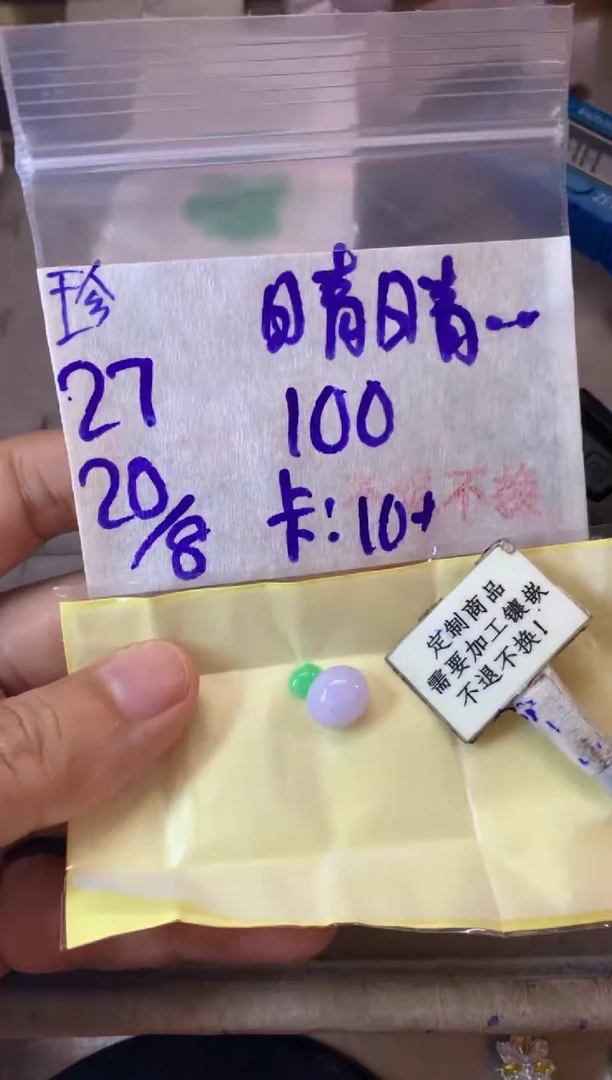 珍
27
20/8
晴晴~
100
卡:10+
不换
定制商品
需要加工镶嵌
不退不换!